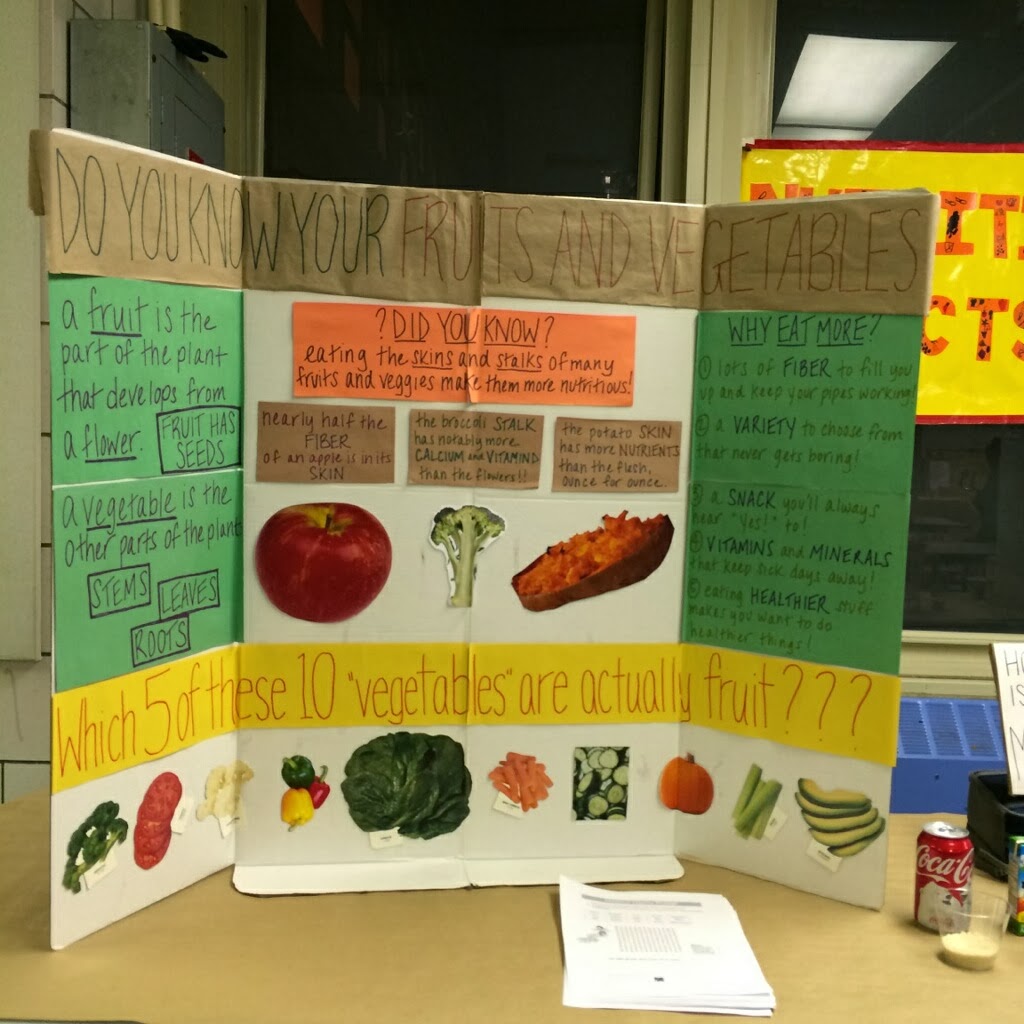 DO YOU KNOW YOUR FRUITS AND VEGETABLES
a fruit is the
part of the plant
that develops from
a flower.
FRUIT HAS
SEEDS
a vegetable is the
other parts of the plant
STEMS
LEAVES
ROOTS
? DID YOU KNOW ?
eating the skins and stalks of many
fruits and veggies make them more nutritious!
nearly half the
FIBER
of an apple is in its
SKIN
the broccoli STALK
has notably more
CALCIUM and VITAMIN D
than the flowers!!
the potato SKIN
has more NUTRIENTS
than the flush,
ounce for ounce.
WHY EAT MORE?
① lots of FIBER to fill you
up and keep your pipes working!
② a VARIETY to choose from
that never gets boring!
③ a SNACK you'll always
hear "Yes!" to!
④ VITAMINS and MINERALS
that keep sick days away!
⑤ eating HEALTHIER stuff
makes you want to do
healthier things!
Which 5 of these 10 "vegetables" are actually fruit???
Coca-Cola